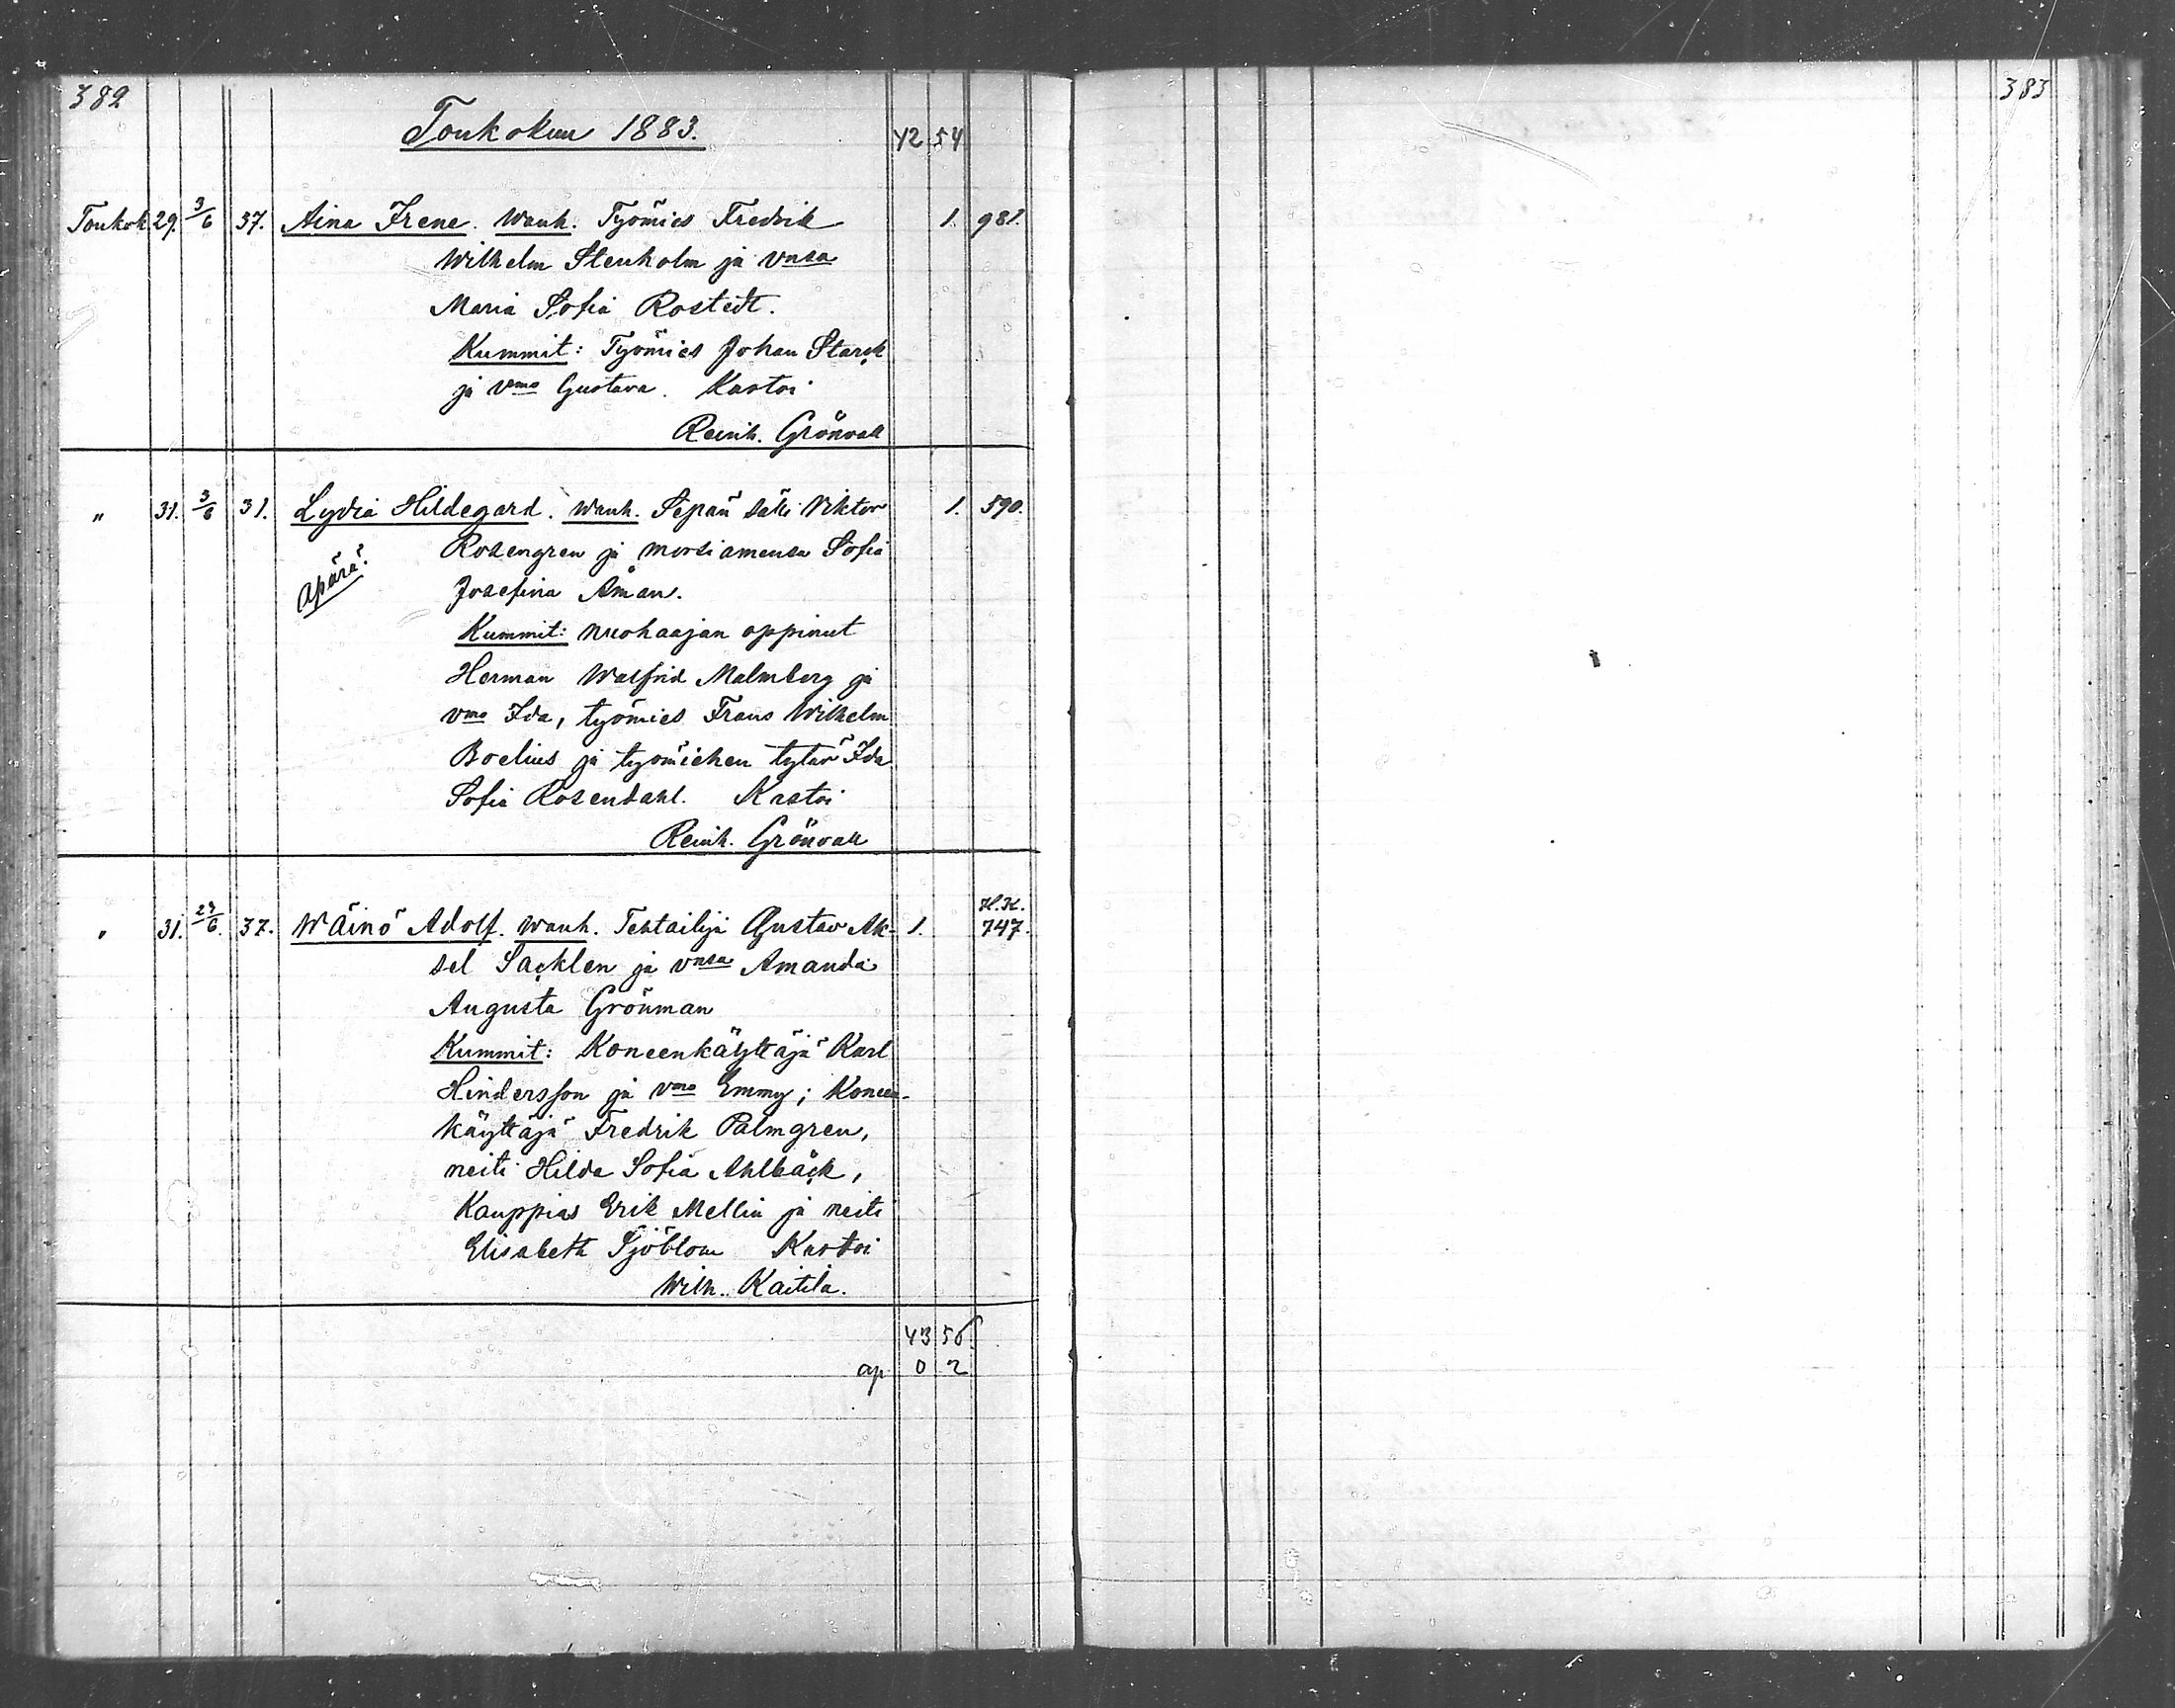 382
383
Toukokuu 1883.
42 54
Toukok 29. 3/6 37. Aina Irene. Wanh. Työmies Fredrik 1. 981.
Wilhelm Stenholm ja vnsa
Maria Sofia Rostedt.
Kummit: Työmies Johan Starck
ja vmo Gustava. Kastoi
Reinh. Grönvall
" 31. 3/6 31. Lydia Hildegard. Wanh. Sepän sälli Viktor 1. 590.
Rosengren ja morsiamensa Sofia
Äpärä.
Josefina Åman.
Kummit: nuohaajan oppinut
Herman Walfrid Malmberg ja
vmo Ida, työmies Frans Wilhelm
Boelius ja työmiehen tytär Ida
Sofia Rosendahl. Kastoi
Reinh. Grönvall
" 31. 24/6. 37. Wäinö Adolf. Wanh. Tehtailija Gustav Ak- 1. H.K. 747.
sel Sacklen ja vnsa Amanda
Augusta Grönman
Kummit: Koneenkäyttäjä Karl
Hindersson ja vmo Emmy; Koneen-
käyttäjä Fredrik Palmgren,
neiti Hilda Sofia Ahlbäck,
Kauppias Erik Mellin ja neiti
Elisabeth Sjöblom Kastoi
Wilh. Kaitila.
43 56
ap 0 2